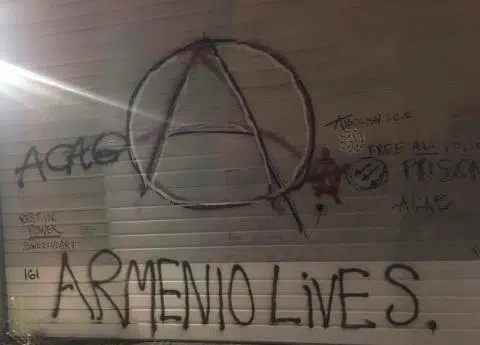 A
ACAB
ABOLISH ICE
FREE ALL
PRISON
ACAB
REST IN
POWER
SWEETHEART
161
ARMENIO LIVES.